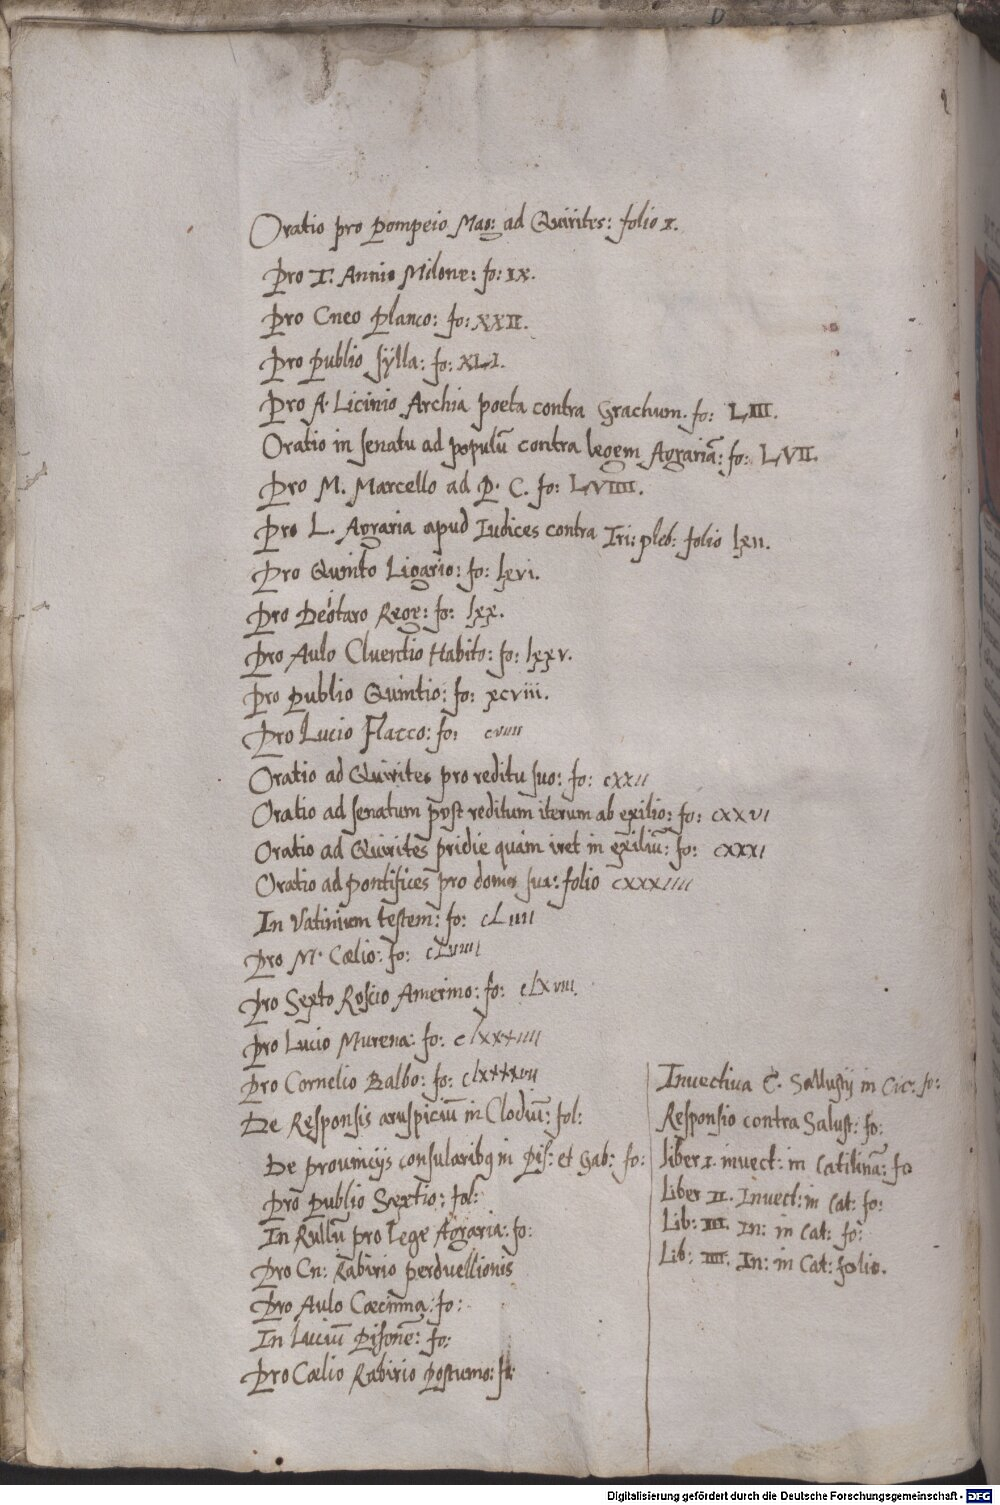 Oratio pro Pompeio Mag: ad Quirites: folio I.
Pro T. Annio Milone: fo: IX.
Pro Cneo Planco: fo: XXII.
Pro Publio Sylla: fo: XLI.
Pro A. Licinio Archia poeta contra Grachum. fo: LIII.
Oratio in senatu ad populū contra legem Agrariā: fo: LVII.
Pro M. Marcello ad P. C. fo: LVIIII.
Pro L. Agraria apud Iudices contra Tri: pleb: folio lxii.
Pro Quinto Ligario: fo: lxvi.
Pro Deiotaro Rege: fo: lxx.
Pro Aulo Cluentio Habito: fo: lxxv.
Pro Publio Quintio: fo: xcviii.
Pro Lucio Flacco: fo: cviiii
Oratio ad Quirites pro reditu suo: fo: cxxii
Oratio ad senatum post reditum iterum ab exilio: fo: cxxvi
Oratio ad Quirites pridie quàm iret in exiliū: fo: cxxxi
Oratio ad pontifices pro domo sua: folio cxxxiiii
In Vatinium testem: fo:
Pro M. Cælio: fo:
Pro Sexto Roscio Amerino: fo: clxviii
Pro Lucio Murena: fo: clxxxiiii
Pro Cornelio Balbo: fo:
De Responsis aruspiciū in Clodiū: fol:
De provincijs consularibq in Pis: et Gab: fo:
Pro Publio Sextio: fol:
In Rullū pro Lege Agraria: fo:
Pro Cn: Rabirio perduellionis
Pro Aulo Cæcinna: fo:
In Luciū Pisonē: fo:
Pro Cælio Rabirio Postumo: fo:
Invectiva C. Sallustij in Cic: fo:
Responsio contra Salust: fo:
liber I. invect: in Catilinā: fo
Liber II. Invect: in Cat: fo:
Lib: III. In: in Cat: fo:
Lib: IIII. In: in Cat: folio.
Digitalisierung gefördert durch die Deutsche Forschungsgemeinschaft - DFG